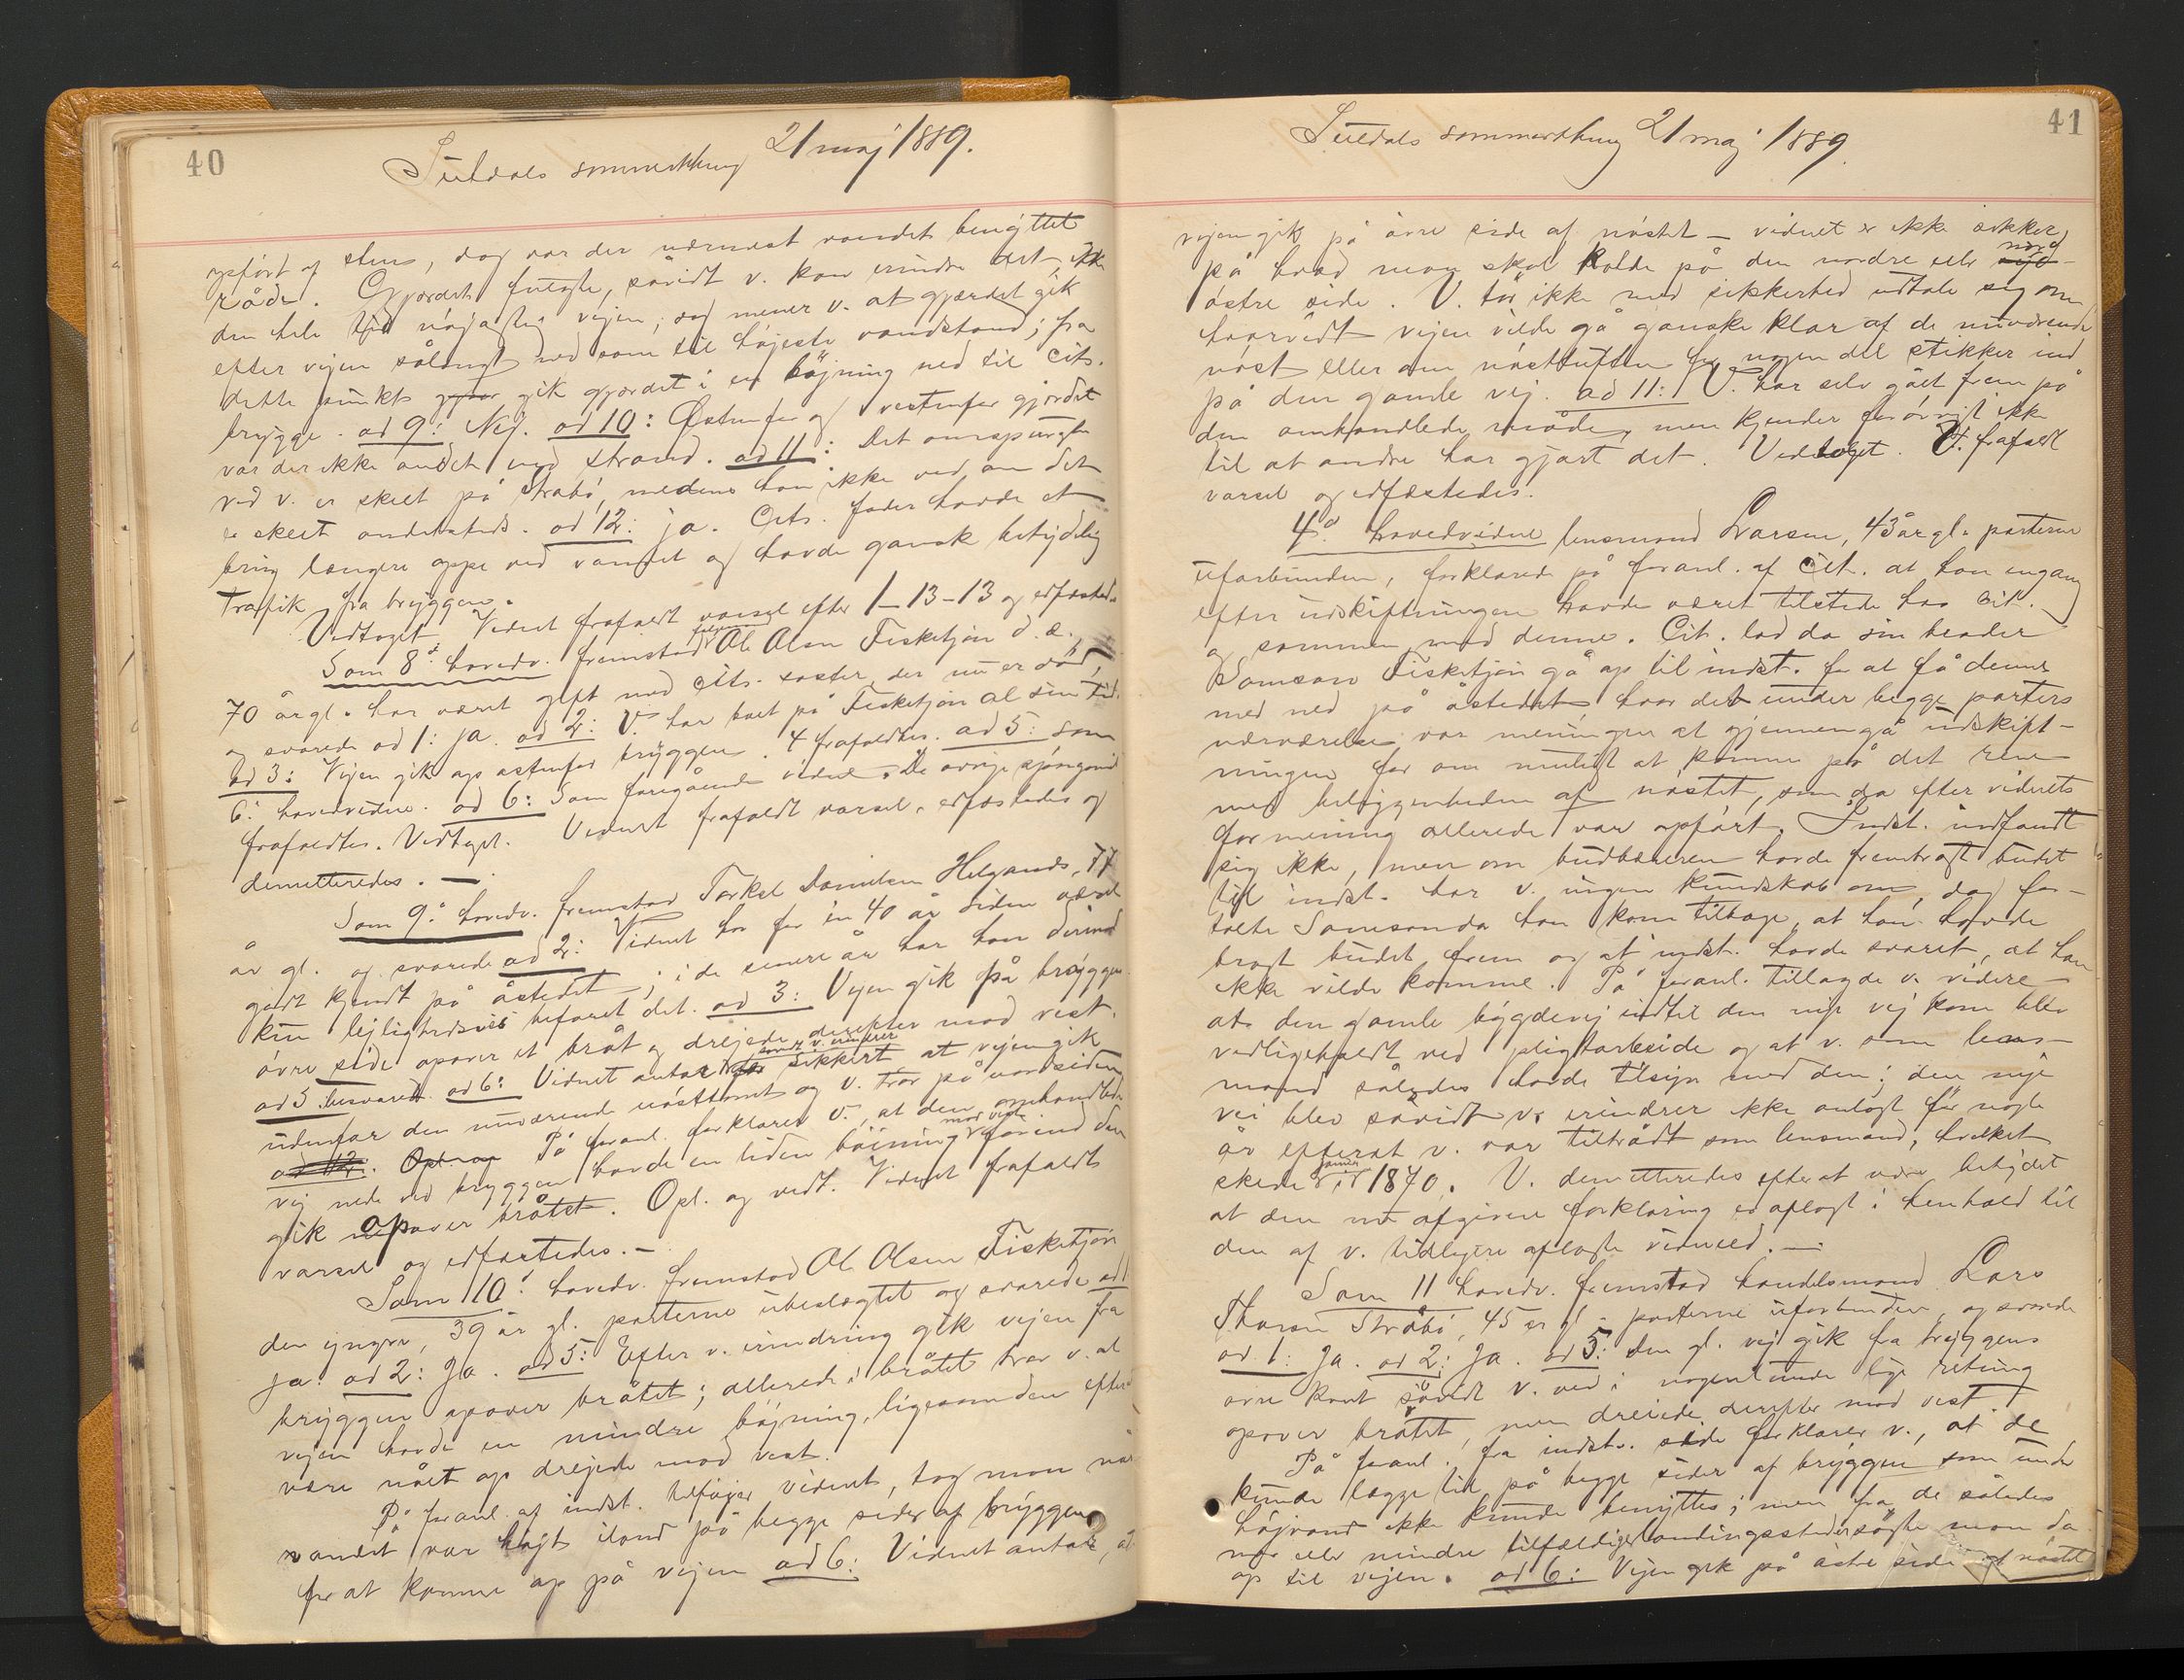 40
Suldals sommerthing 21 maj 1889.
opført af stens, dog var der nærmest vandet benyttet
råde. Gjærdet fulgte, såvidt v. kan erindre det ikke
den hele tid nøjagtig vejen, dog mener v. at gjærdet gik
efter vejen sålangt ned som til højeste vandstand; fra
dette punkt gik gjærdet i en bøjning ned til cits.
brygge. ad 9: Nej. ad 10: Østenfor og vestenfor gjærdet
var der ikke andet end strand. ad 11: Det omspurgte
ved v. er skeet på Stråbø, medens han ikke ved om det
er skeet andetsteds. ad 12: ja. Cits. fader havde et
brug længere oppe ved vandet og havde ganske betydelig
Trafik fra bryggen.
Vedtaget. Vidnet frafaldt varsel efter 1-13-13 og edfæstedes
Som 8d hovedv. fremstod Ol Olsen Fisketjøn d. æ.
70 år gl. har været gift med cits. søster, der nu er død,
og svarede ad 1: ja. ad 2: V. har boet på Fisketjøn al sin tid.
ad 3: Vejen gik op østenfor bryggen. 4 frafaldtes. ad 5: som
6. hovedvidne. ad 6: Som foregående vidne. De øvrige spørgsmål
frafaldtes. Vedtaget. Vidnet frafaldt varsel, edfæstedes og
demitteredes. —
Som 9d hovedv. fremstod Torkel Danielsen Helgeands, 77
år gl. og svarede ad 2: Vidnet har for en 40 år siden været
godt kjendt på åstedet; i de senere år har han derimod
kun lejlighedsvis befaret det. ad 3: Vejen gik på bryggens
øvre side opover et bråt og drejede derefter mod vest.
ad 5 besvaret. ad 6: Vidnet antar sikkert at vejen gik
udenfor den nuværende nøsttomt og v. tror på nordsiden
ad 12. På foranl. forklarer v., at den omhandlede
vej nede ved bryggen havde en liden bøining mod vest førend den
gik opover bråtet. Opl. og vedt. Vidnet frafaldt
varsel og edfæstedes. —
Som 10d hovedv. fremstod Ol Olsen Fisketjøn
den yngre, 39 år gl. parterne ubeslægtet og svarede ad 1
ja. ad 2: Ja. ad 5: Efter v. erindring gik vejen fra
bryggen opover bråtet; allerede i bråtet tror v. at
vejen havde en mindre bøjning, ligesom den efter at
være nået op drejede mod vest.
På foranl. af indst. tilføjer vidnet, tog man når
vandet var højt iland på begge sider af bryggen
for at komme op på vejen ad 6: Vidnet antar, at
41
Suldals sommerthing 21 maj 1889.
vejen gik på øvre side af nøstet — vidnet er ikke sikker
på hvad man skal kalde på den nordre eller nord
østre side. V. tør ikke med sikkerhed udtale sig om
hvorvidt vejen vilde gå ganske klar af de nuværende
nøst eller om nøsttuften for nogen del stikker ind
på den gamle vej. ad 11: V. har selv gået frem på
den omhandlede måde, men kjender forøvrigt ikke
til at andre har gjort det. Vedtaget. V. frafaldt
varsel og edfæstedes.
4d hovedvidne lensmand Larsen, 43 år gl. parterne
uforbunden, forklarede på foranl. af Cit. at han engang
efter udskiftningen havde været tilstede hos cit.
og sammen med denne. Cit. lod da sin broder
Samson Fisketjøn gå op til indst. for at få denne
med ned på åstedet, hvor det under begge parters
nærværelse var meningen at gjennemgå udskift-
ningen for om muligt at komme på det rene
med beliggenheden af nøstet, som da efter vidnets
formening allerede var opført. Indst. indfandt
sig ikke, men om budbæreren havde frembragt budet
til indst. har v. ingen kundskab om, dog for-
talte Samson da han kom tilbage, at han havde
bragt budet frem og at indst. havde svaret, at han
ikke vilde komme. På foranl. tillagde v. videre
at den gamle bygdevej indtil den nye vej kom blev
vedligeholdt ved pligtarbeide og at v. som lens-
mand således havde tilsyn med den; den nye
vei blev såvidt v. erindrer ikke anlagt før nogle
år efterat v. var tiltrådt som lensmand, hvilket
skede i 1870. V. demitteredes efter at være betydet
at den nu afgivne forklaring er aflagt i henhold til
den af v. tidligere aflagte vidneed. —
Som 11 hovedv. fremstod handelsmand Lars
Thorsen Stråbø, 45 år gl. parterne uforbunden, og svarede
ad 1: Ja. ad 2: Ja. ad 5: Den gl. vej gik fra bryggens
øvre kant såvidt v. ved i nogenlunde lige retning
opover bråtet, men dreiede derefter mod vest.
På foranl. fra indst. side forklarer v., at de
kunde lægge til på begge sider af bryggen som under
højvand ikke kunde benyttes; men fra de således
mer eller mindre tilfældige landingssteder søgte man da
op til vejen. ad 6: Vejen gik på østre side af nøstet